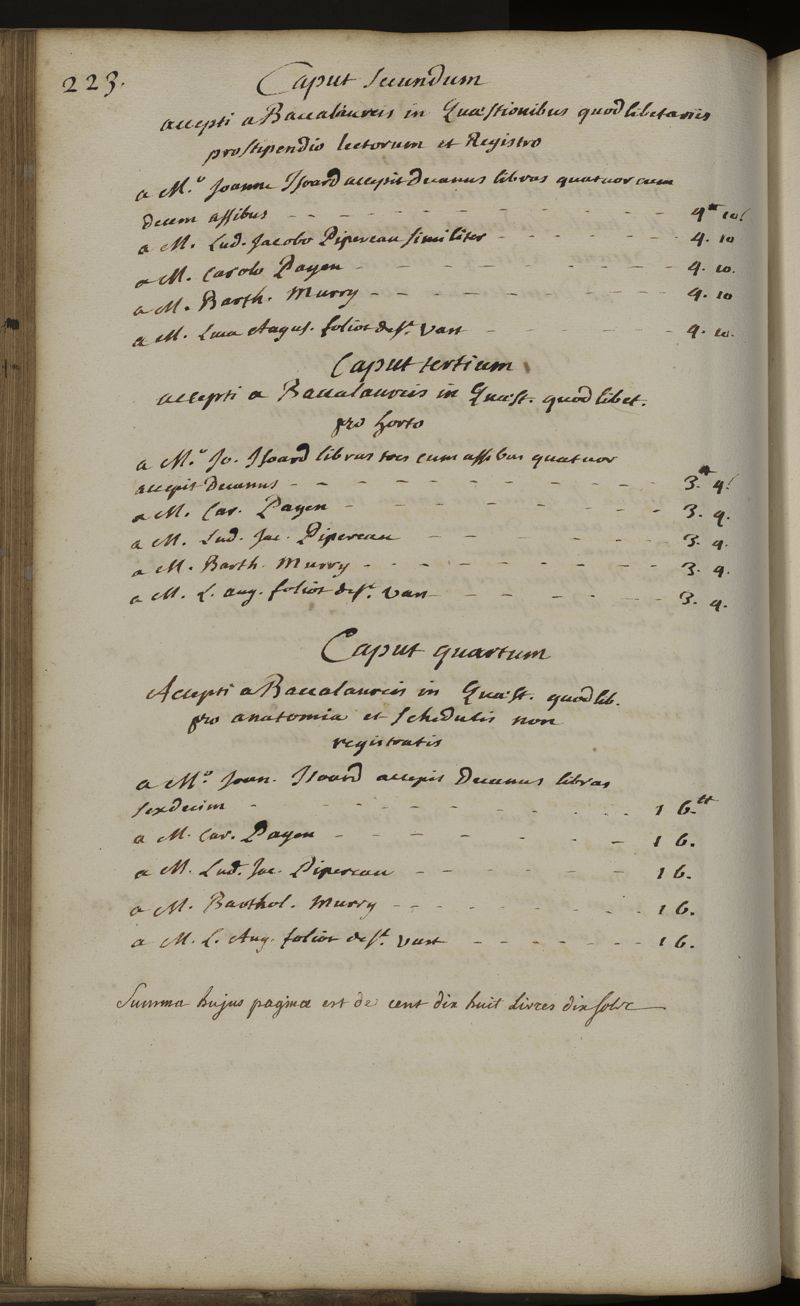 223.
Caput secundum
accepti a Baccalaureis in Quæstionibus quodlibetariis
pro stipendio lectorum et Registro
a M.º Joanne Isoard accepit Decanus libras quatuor cum
decem assibus - - - - - - - - - - 4.tt 10.s
a M. Lud. Jacobo Pipereau similiter - - - - - - 4. 10
a M. Carolo Payen - - - - - - - - - 4. 10.
a M. Barth. Murry - - - - - - - - 4. 10
a M. Luca Augus. foliot de St. Vast - - - - - 4. 10.
Caput tertium
accepti a Baccalaureis in Quæst. quodlibet.
pro horto
a M.º Jo. Isoard libras tres cum assibus quatuor
accepit Decanus - - - - - - - - - - 3.tt 4.s
a M. Car. Payen - - - - - - - - - 3. 4.
a M. Lud. Jac. Pipereau - - - - - - - 3. 4.
a M. Barth. Murry - - - - - - - - - 3. 4.
a M. L. aug. foliot de St. Vast - - - - - - 3. 4.
Caput quartum
Accepti a Baccalaureis in Quæst. quodlib.
pro anatomia et schedulis non
registratis
a M.º Joan. Isoard accepit Decanus libras
sexdecim - - - - - - - - - - 16.tt
a M. Car. Payen - - - - - - - 16.
a M. Lud. Jac. Pipereau - - - - - - 16.
a M. Barthol. Murry - - - - - - - - 16.
a M. L. Aug. foliot de St. Vast - - - - - - 16.
Summa hujus paginæ est de cent dix huit livres dix sols